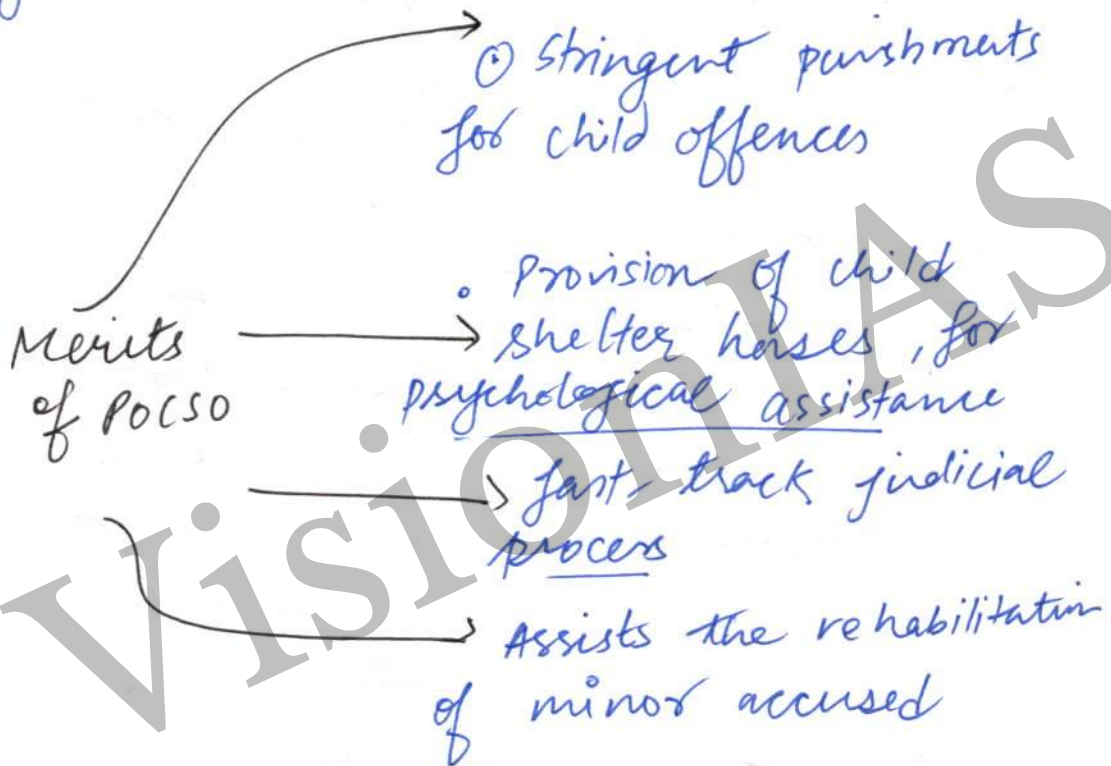 ⊙ Stringent punishments
for child offences
• Provision of child
shelter houses, for
psychological assistance
Merits
of POCSO
fast-track judicial
process
Assists the rehabilitation
of minor accused
VisionIAS